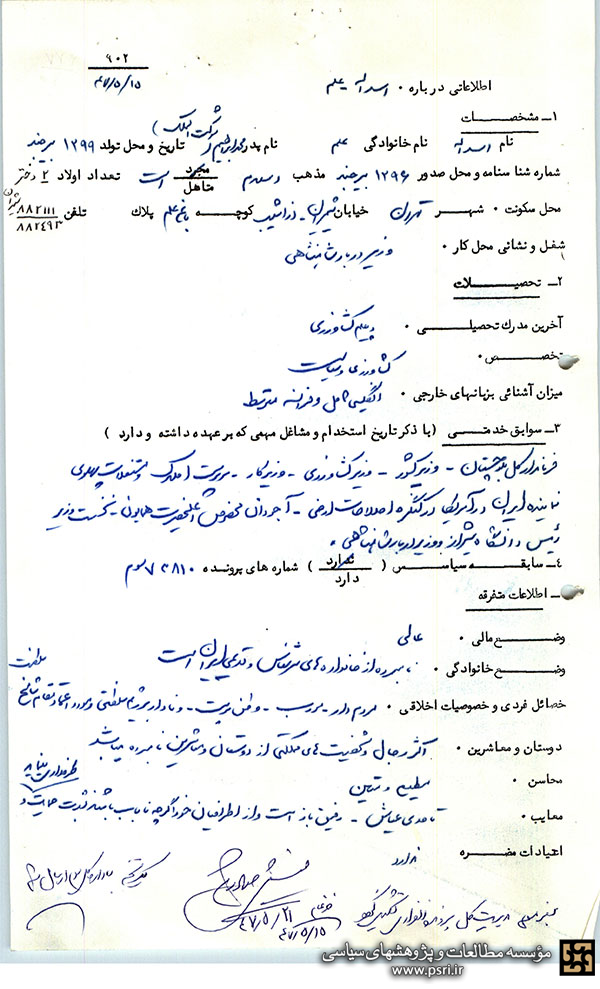 ۹۰۲
۴۷/۵/۱۵
اطلاعاتی درباره ۰ اسداله علم
۱ــ مشخصــات
نام اسداله نام خانوادگی علم نام پدر محمدابراهیم (شوکت الملک) تاریخ و محل تولد ۱۲۹۹ بیرجند
شماره شناسنامه و محل صدور ۱۲۹۶ بیرجند مذهب مجرد متاهل است تعداد اولاد ۲ دختر
محل سکونت ۰ شهر تهران خیابان شمیران ـ کوچه باغ علم پلاک تلفن ۸۸۲۱۱۱ ۸۸۲۴۹۳ شمیران
شغل و نشانی محل کار ۰ وزیر دربار شاهنشاهی
۲ــ تحصیــلات
آخرین مدرک تحصیلــی ۰ دیپلم کشاورزی
تخصص ۰ کشاورزی و سیاست
میزان آشنائی بزبانهای خارجی ۰ انگلیسی کامل و فرانسه متوسط
۳ــ سوابق خدمتــی (با ذکر تاریخ استخدام و مشاغل مهمی که بر عهده داشته و دارد)
فرماندار کل بلوچستان ـ وزیر کشور ـ وزیر کشاورزی ـ وزیر کار ـ سرپرست املاک و مستغلات پهلوی
نماینده ایران در آمریکا در کنگره اصلاحات ارضی ـ آجودان مخصوص اعلیحضرت همایون ـ نخست وزیر
رئیس دانشگاه شیراز و وزیر دربار شاهنشاهی ۰
۴ــ سابقــه سیاســی (ندارد دارد) شماره های پرونده ۷۳۸۱۰
ــ اطلاعات متفرقه
وضــع مالی ۰ عالی
وضــع خانوادگی ۰ نامبرده از خانواده های سرشناس و قدیمی ایران است
خصائل فردی و خصوصیات اخلاقی ۰ مردم دار ـ مودب ـ وطن پرست ـ و وفادار برژیم سلطنتی و مورد اعتماد مقام شامخ سلطنت
دوستان و معاشرین ۰ اکثر رجال و شخصیت های مملکتی از دوستان و معاشرین نامبرده میباشد
محاسن ۰ سلیم و متین
معایب ۰ تاحدی عیاش ـ رفیق باز است و از اطرافیان خود اگرچه ناباب باشند بشدت حمایت و طرفداری مینماید
اعتیادات مضره ندارد
۴۷/۵/۲۱
۴۷/۵/۱۵
مؤسسه مطالعات و پژوهشهای سیاسی
www.psri.ir